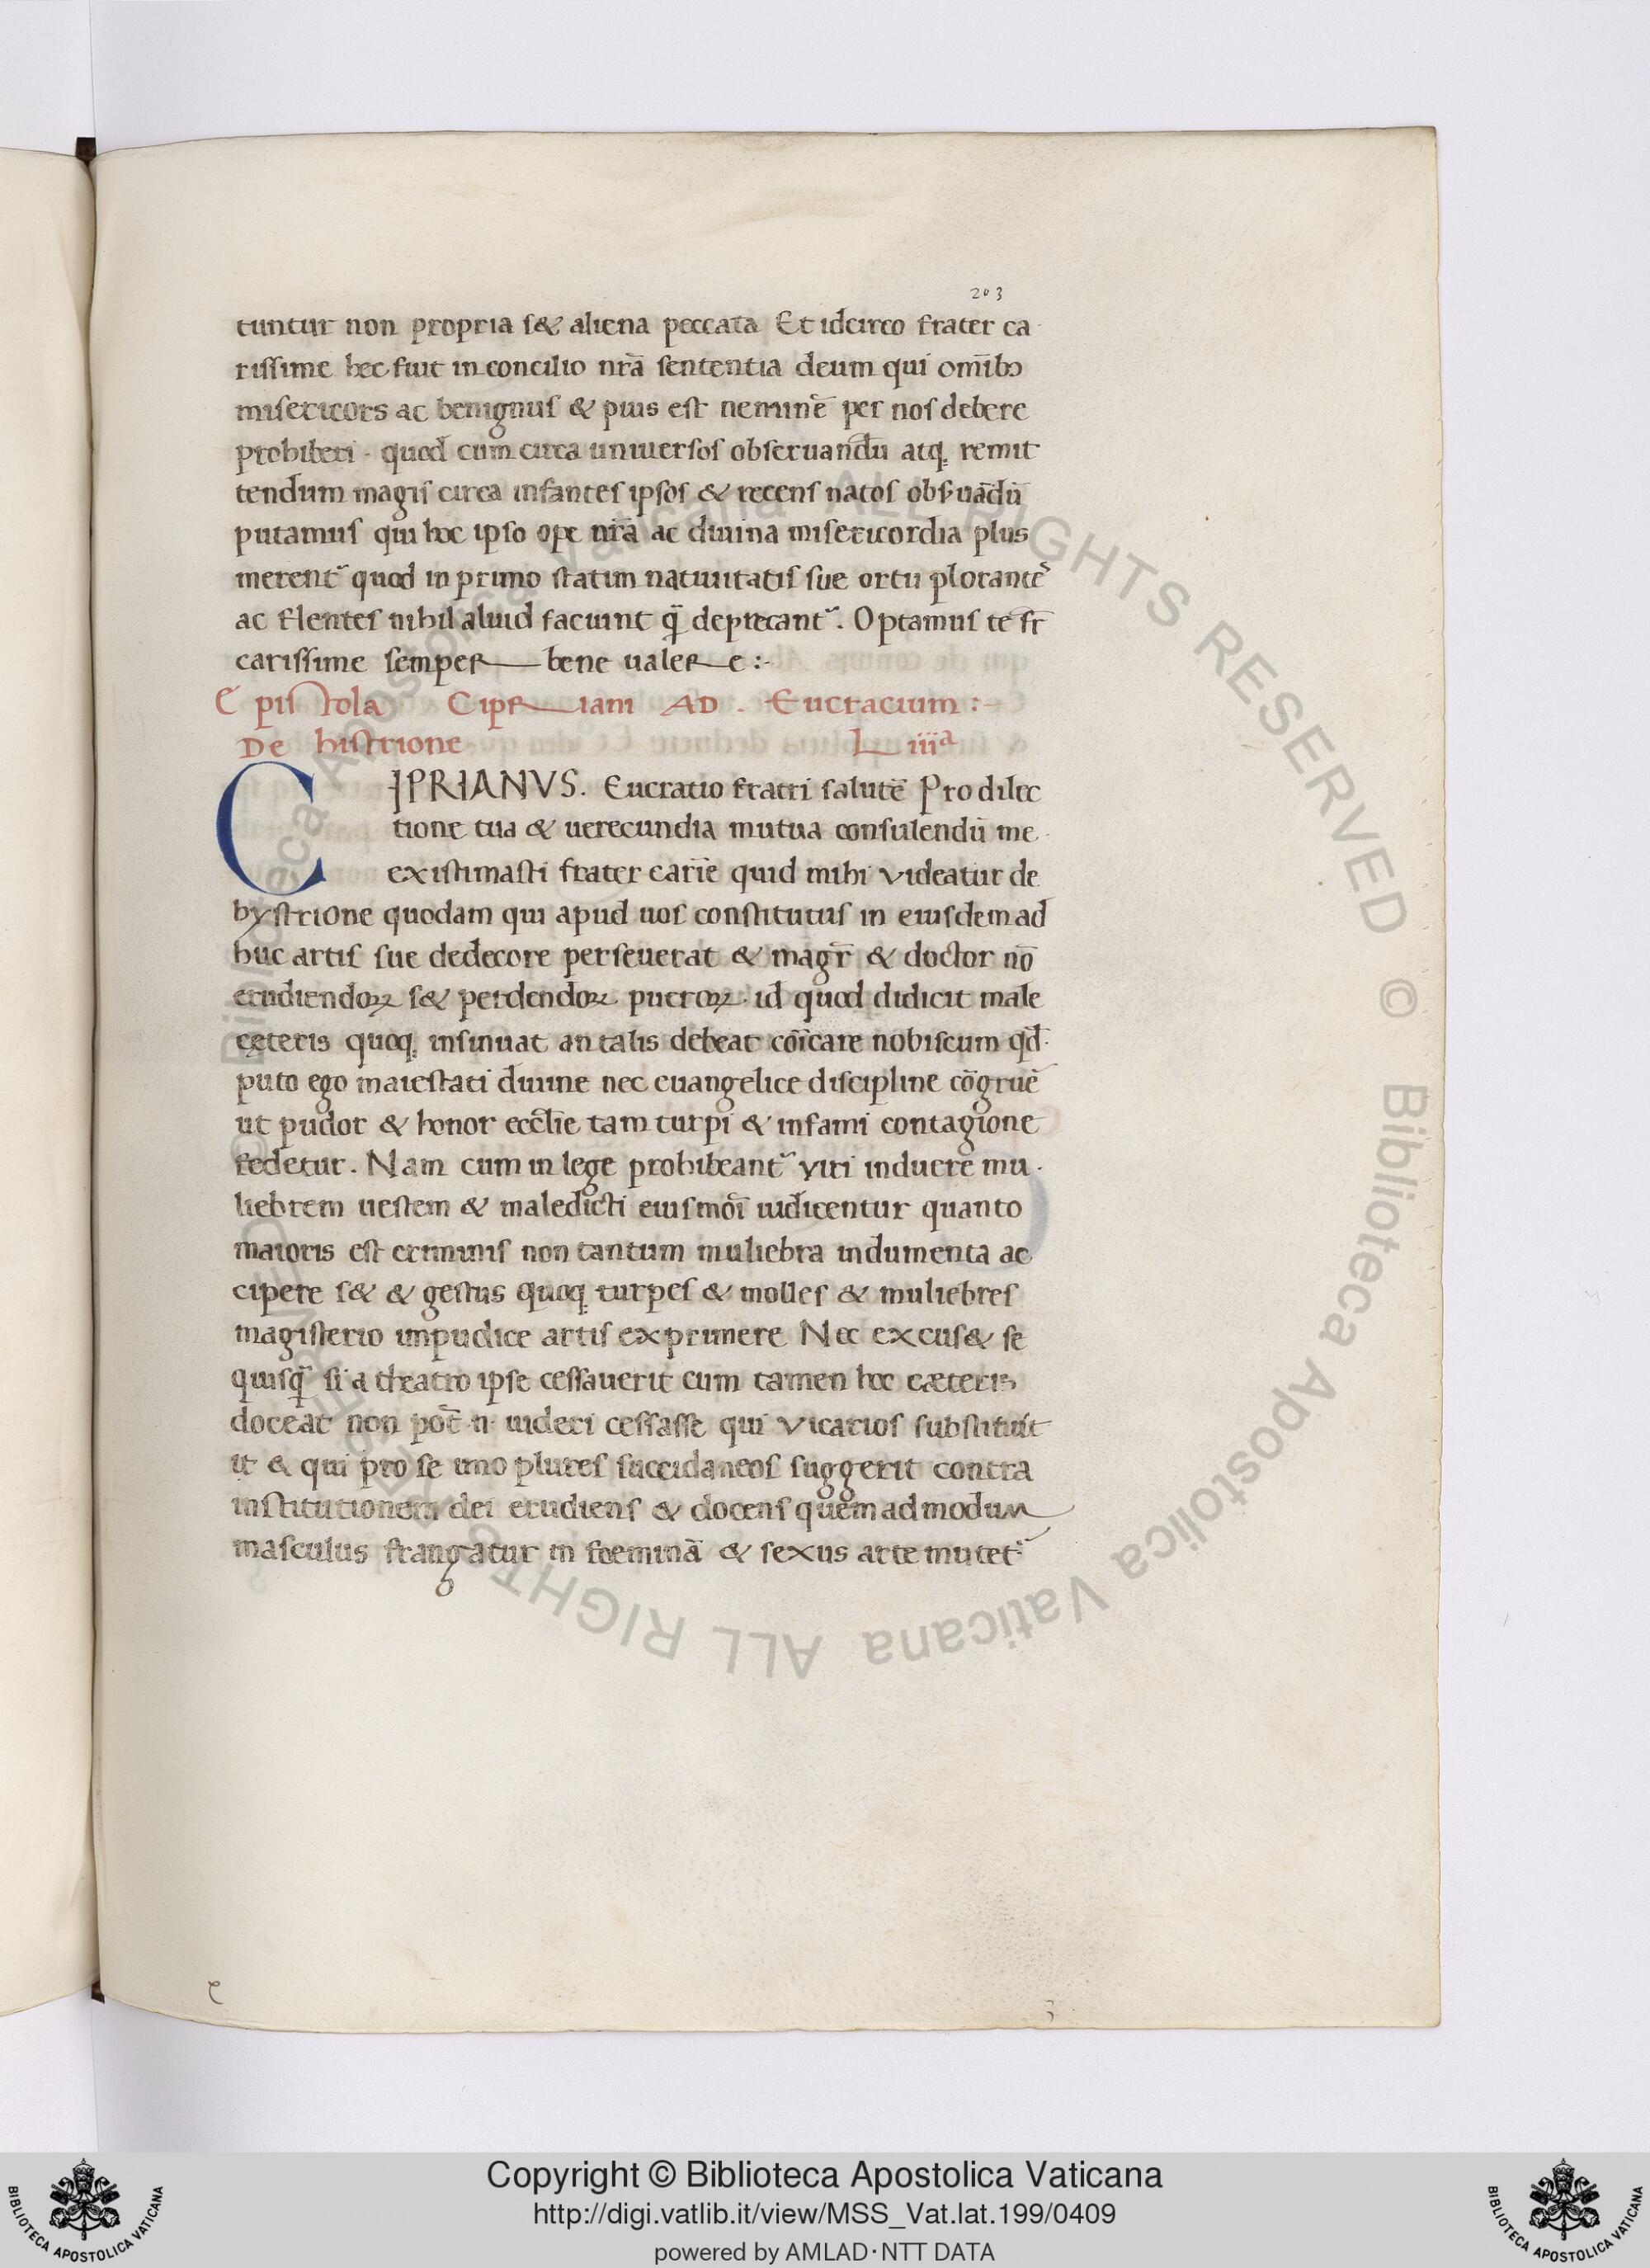 203
tuntur non propria s& aliena peccata Et idcirco frater ca
rissime hec fuit in concilio nr̄a sententia deum qui om̄ibꝯ
misericors ac benignus & pius est neminē per nos debere
prohiberi · quod cum circa uniuersos obseruandū atq; remit
tendum magis circa infantes ipsos & recens natos obs̓uādū
putamus qui hoc ipso ope nr̄a ac diuina misericordia plus
merent᷑ quod in primo statim natiuitatis sue ortu plorantẽ
ac flentes nihil aluid faciunt q̄ deprecant᷑. Optamus te fr̄
carissime semper bene ualere :-
Epistola Cipriani AD . Eucracium :-
De histrione L iiiᵃ
CIPRIANVS. Eucratio fratri salutē Pro dilec
tione tua & uerecundia mutua consulendū me
existimasti frater carīe quid mihi videatur de
hystrione quodam qui apud uos constitutus in eiusdem ad
huc artis sue dedecore perseuerat & magr̄ & doctor nō
erudiendoꝝ s& perdendoꝝ pueroꝝ · id quod didicit male
cęteris quoq; insinuat an talis debeat cōicare nobiscum qđ·
puto ego maiestati diuine nec euangelice discipline cōgruē
ut pudor & honor eccl̄ie tam turpi & infami contagione
fedetur. Nam cum in lege prohibeant᷑ viri induere mu
liebrem uestem & maledicti eiusmōi iudicentur quanto
maioris est criminis non tantum muliebra indumenta ac
cipere s& & gestus quoq; turpes & molles & muliebres
magisterio impudice artis exprimere Nec excus& se
quisq̄ si a theatro ipse cessauerit cum tamen hoc cæteris
doceat non pōt ·n· uideri cessasse qui vicarios substituit
it & qui pro se uno plures succidaneos suggerit contra
institutionem dei erudiens & docens quem ad modum
masculus frangatur in foeminā & sexus arte mutet᷑
e
3
Copyright © Biblioteca Apostolica Vaticana
http://digi.vatlib.it/view/MSS_Vat.lat.199/0409
powered by AMLAD·NTT DATA
BIBLIOTECA APOSTOLICA VATICANA
BIBLIOTECA APOSTOLICA VATICANA
© Biblioteca Apostolica Vaticana ALL RIGHTS RESERVED © Biblioteca Apostolica Vaticana ALL RIGHTS RESERVED